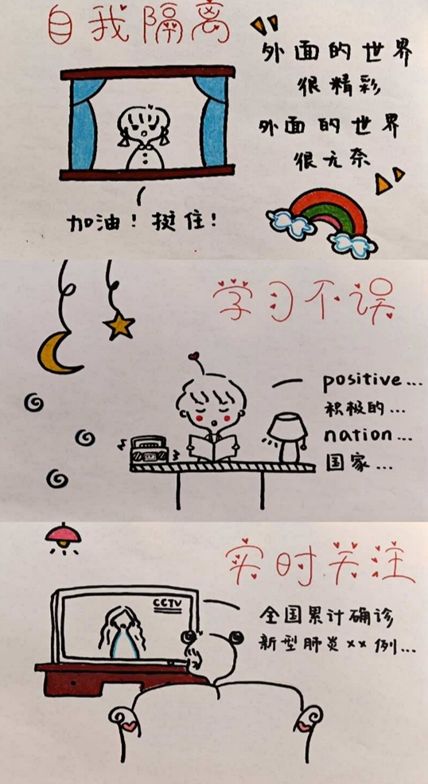 自我隔离
外面的世界
很精彩
外面的世界
很无奈
加油！挺住！
学习不误
positive...
积极的...
nation...
国家...
实时关注
CCTV
全国累计确诊
新型肺炎××例...